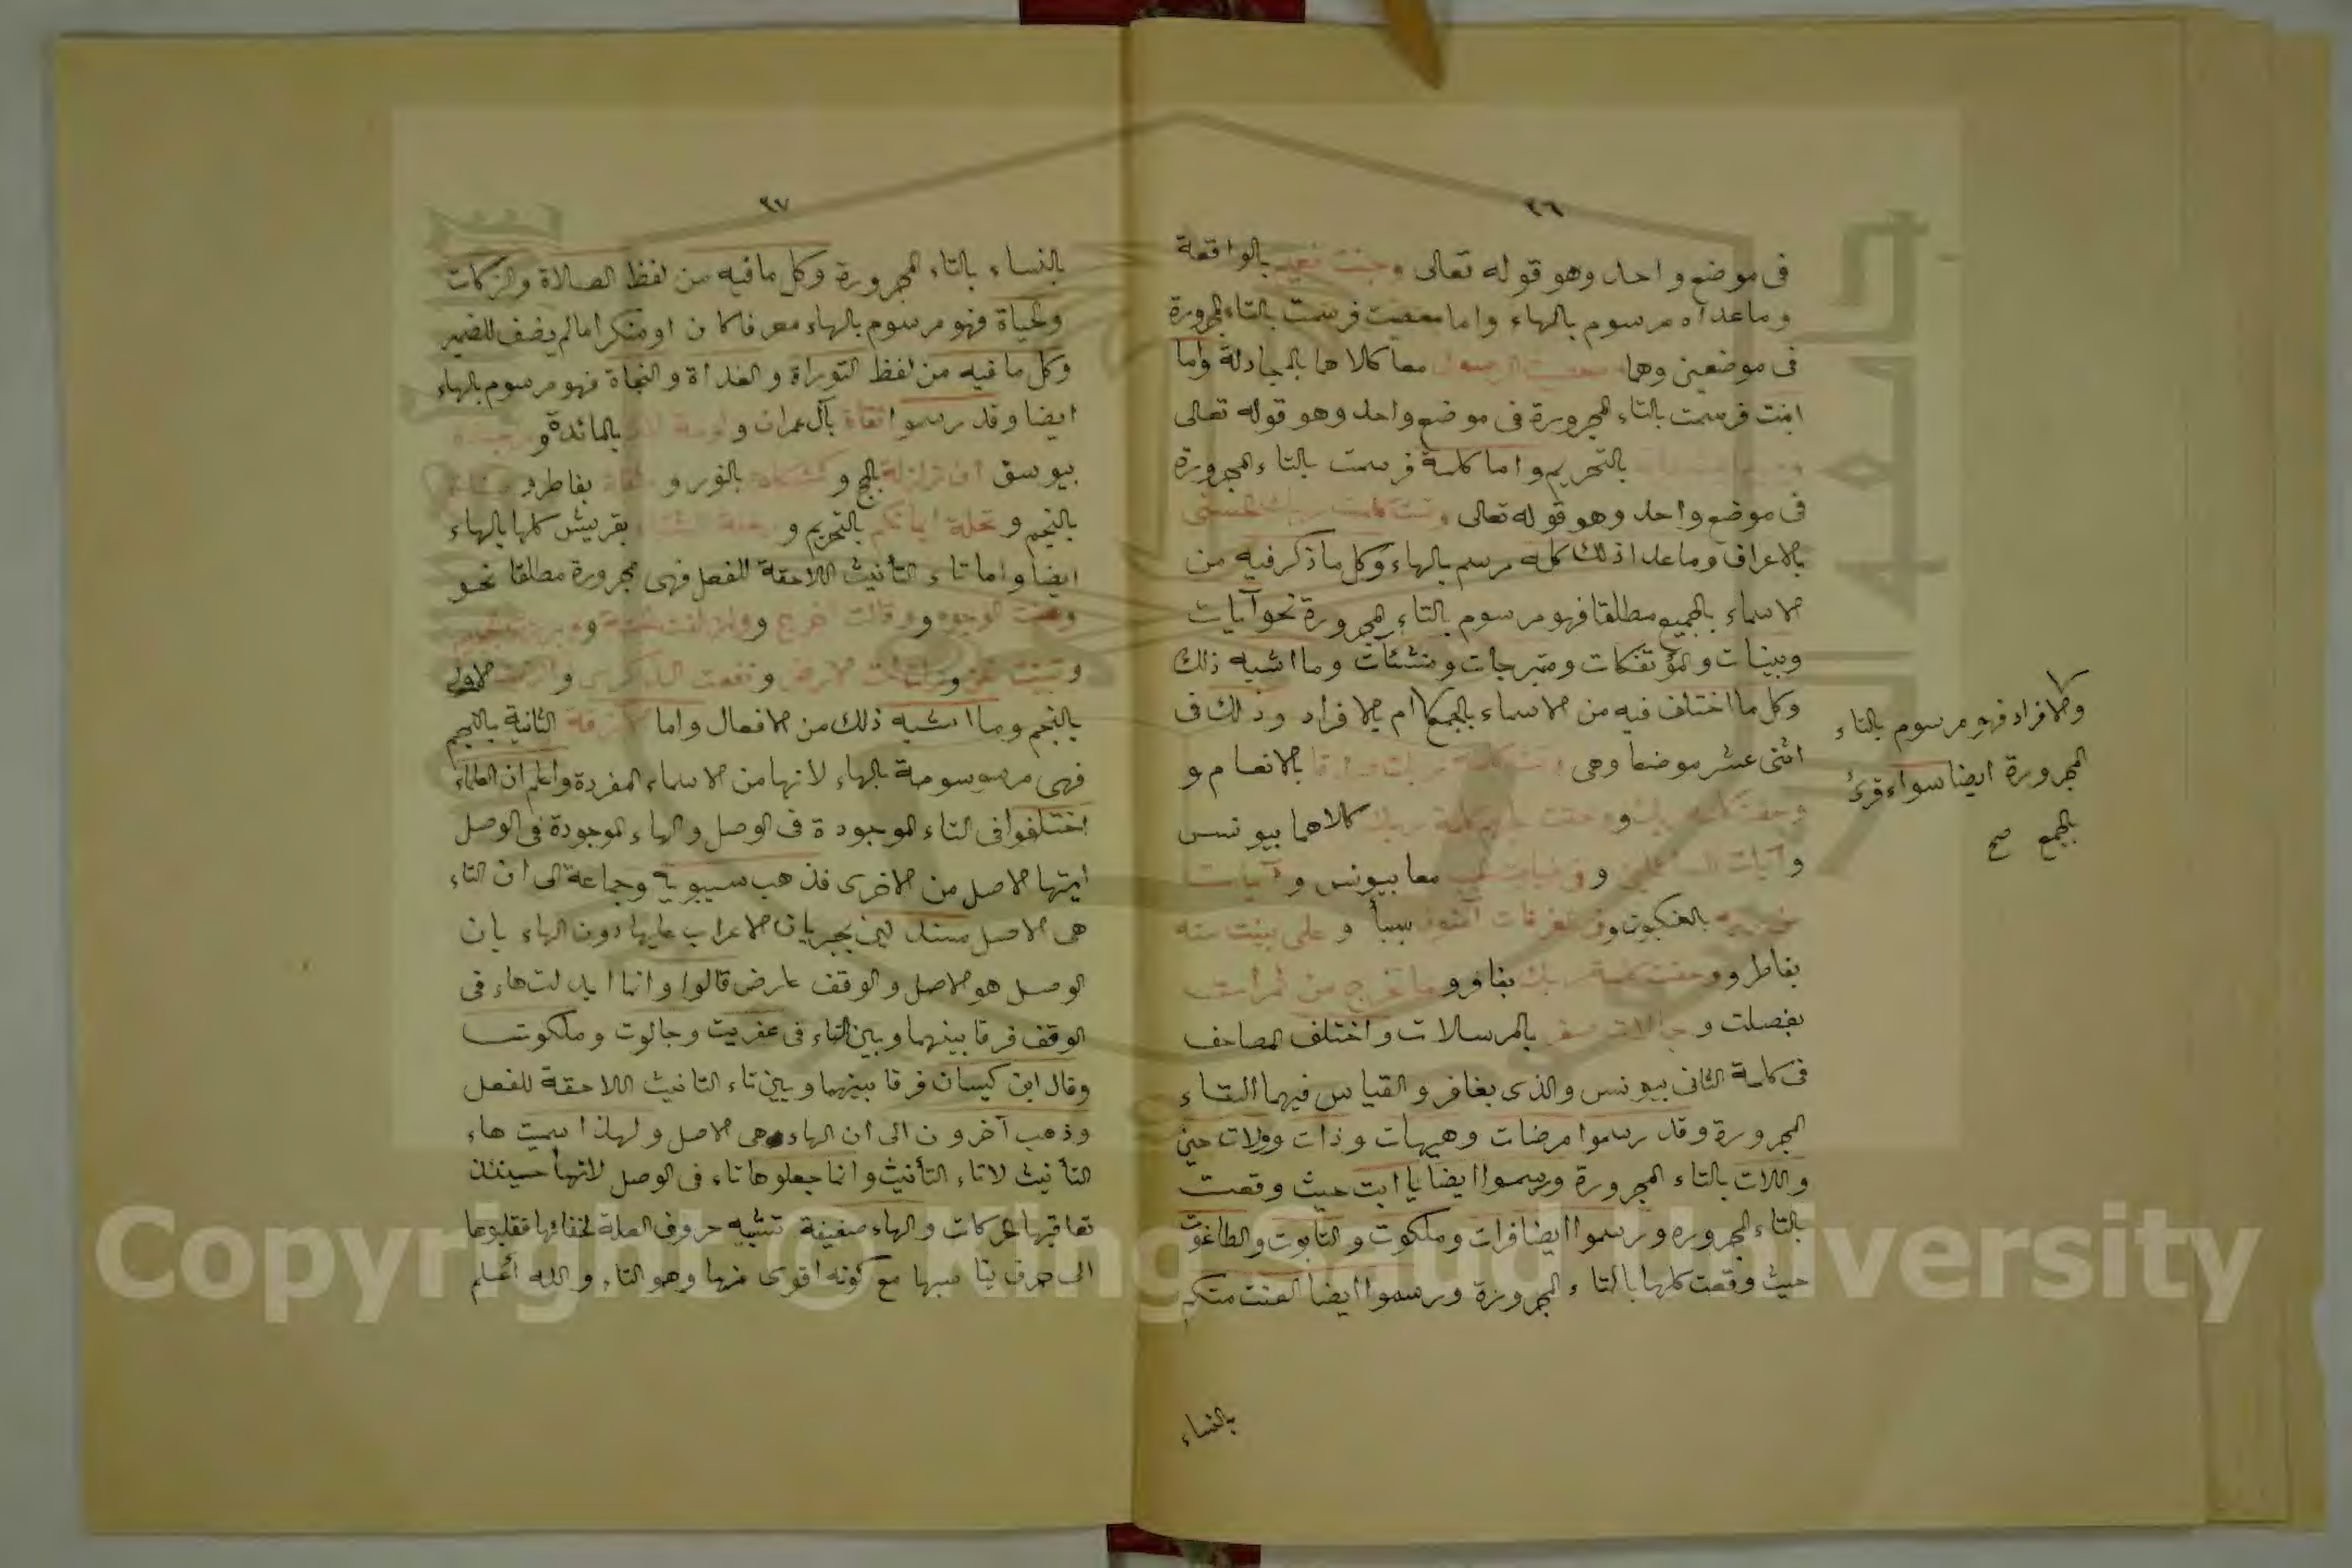 ٣٦
فى موضع واحد وهو قوله تعالى وجنت نعيم بالواقعة
وما عداه مرسوم بالهاء واما معصيت فرسمت بالتاء المجرورة
فى موضعين وهما معصيت الرسول معا كلاهما بالمجادلة واما
ابنت فرسمت بالتاء المجرورة فى موضع واحد وهو قوله تعالى
بالتحريم واما كلمة فرسمت بالتاء المجرورة
فى موضع واحد وهو قوله تعالى وتمت كلمت ربك الحسنى
بالاعراف وما عدا ذلك كله مرسم بالهاء وكل ما ذكر فيه من
الاسماء بالجميع مطلقا فهو مرسوم بالتاء المجرورة نحو آيات
وبينات والمؤتفكات ومتبرجات ومنشئات وما اشبه ذلك
وكل ما اختلف فيه من الاسماء بالجمع ام بالافراد وذلك فى
اثنى عشر موضعا وهى بالانعام و
كلاهما بيونس
وآيات للسائلين و معا بيوسف و آيات
بالعنكبوت وفى الغرفات آمنون بسبأ و على بينت منه
بفاطر وحقت كلمة ربك بغافر وما تخرج من ثمرات
بفصلت و جمالات صفر بالمرسلات واختلف المصاحف
فى كلمة الثانى بيونس والذى بغافر والقياس فيهما التاء
المجرورة وقد رسموا مرضات وهيهات وذات وولات حين
واللات بالتاء المجرورة ورسموا ايضا يا ابت حيث وقعت
بالتاء المجرورة ورسموا ايضا فرات وملكوت والتابوت والطاغوت
حيث وقعت كلها بالتاء المجرورة ورسموا ايضا العنت منكم
بالنساء
والافراد فهو مرسوم بالتاء
المجرورة ايضا سواء قرئ
بالجمع صح
٣٧
بالنساء بالتاء المجرورة وكل ما فيه من لفظ الصلاة والزكات
والحياة فهو مرسوم بالهاء معرفا كان او منكرا ما لم يضف للضمير
وكل ما فيه من لفظ التوراة والغداة والنجاة فهو مرسوم بالهاء
ايضا وقد رسموا تقاة بآل عمران و لومة لائم بالمائدة و مزجاة
بيوسف ان زلزلة بالحج و كمشكاة بالنور و بفاطر و مناة
بالنجم و تحلة ايمانكم بالتحريم و رحلة الشتاء بقريش كلها بالهاء
ايضا واما تاء التأنيث اللاحقة للفعل فهى مجرورة مطلقا نحو
وعنت الوجوه و وقالت اخرج و وازلفت الجنة و وبرزت الجحيم
و تبينت الجن و الارض و نفعت الذكرى و ازفت الاولى
بالنجم وما اشبه ذلك من الافعال واما الآزفة الثانية بالنجم
فهى مرسومة بالهاء لانها من الاسماء المفردة واعلم ان العلماء
اختلفوا فى التاء الموجودة فى الوصل والهاء الموجودة فى الوصل
ايتها الاصل من الاخرى فذهب سيبويه وجماعة الى ان التاء
هى الاصل مستدلين بجريان الاعراب عليها دون الهاء بان
الوصل هو الاصل والوقف عارض قالوا وانما ابدلت هاء فى
الوقف فرقا بينهما وبين التاء فى عفريت وجالوت وملكوت
وقال ابن كيسان فرقا بينهما وبين تاء التانيث اللاحقة للفعل
وذهب آخرون الى ان الهاء هى الاصل ولهذا سميت هاء
التأنيث لا تاء التأنيث وانما جعلوها تاء فى الوصل لانها حينئذ
تعاقبها الحركات والهاء ضعيفة تشبه حروف العلة لخفائها فقلبوها
الى حرف يناسبها مع كونه اقوى منها وهو التاء والله أعلم
Copyright © King Saud University